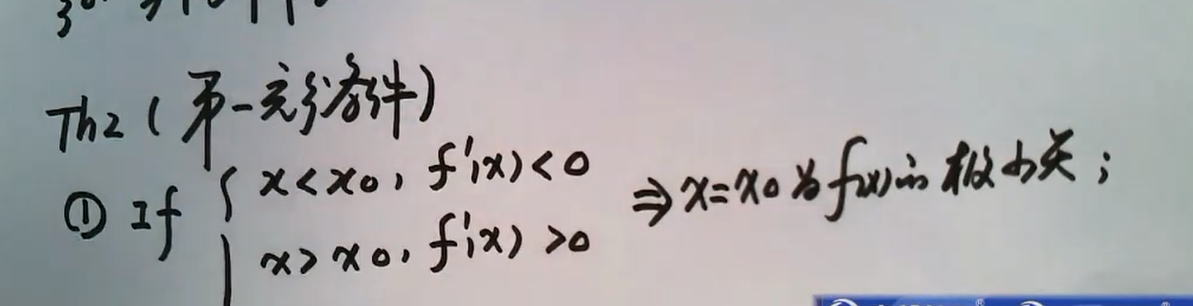 Th2 (第一充分条件)
① If { x<x₀, f'(x)<0
x>x₀, f'(x)>0
⇒ x=x₀为f(x)的极小点;